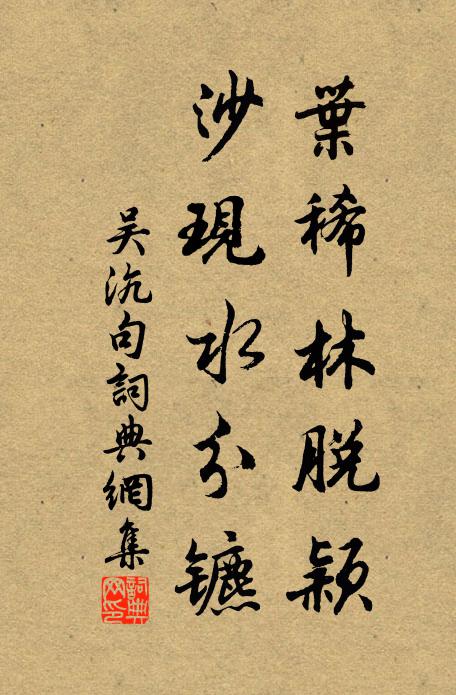 葉稀林脫穎
沙現水分鑣
吴沆句詞典網集
詞典網印